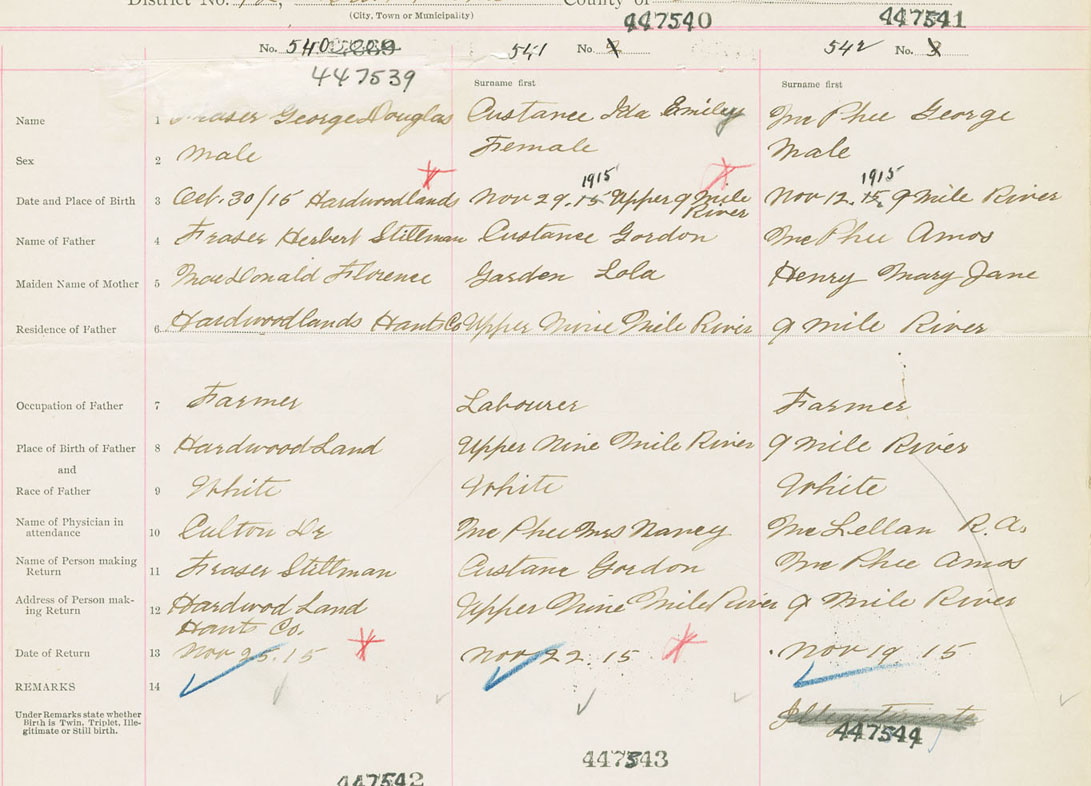 District No.
County of
(City, Town or Municipality)
447540
447541
No. 540
541 No.
542 No.
447539
Surname first
Surname first
Name 1 Fraser George Douglas Custance Ida Emily McPhee George
Sex 2 Male Female Male
1915 1915
Date and Place of Birth 3 Oct. 30/15 Hardwoodlands Nov 29. 15 Upper 9 mile River Nov 12. 15 9 mile River
Name of Father 4 Fraser Herbert Stillman Custance Gordon McPhee Amos
Maiden Name of Mother 5 MacDonald Florence Garden Lola Henry Mary Jane
Residence of Father 6 Hardwoodlands Hants Co Upper Nine Mile River 9 mile River
Occupation of Father 7 Farmer Labourer Farmer
Place of Birth of Father 8 Hardwood Land Upper Nine Mile River 9 mile River
and
Race of Father 9 White White White
Name of Physician in attendance 10 Culton Dr McPhee Mrs Nancy McLellan R.A.
Name of Person making Return 11 Fraser Stillman Custanc Gordon McPhee Amos
Address of Person making Return 12 Hardwod Land Upper Nine Mile River 9 Mile River
Hants Co.
Date of Return 13 Nov 25. 15 Nov 22. 15 Nov 19 15
REMARKS 14
Under Remarks state whether
Birth is Twin, Triplet, Ille-
gitimate or Still birth.
Illegitimate
447544
447543
447542